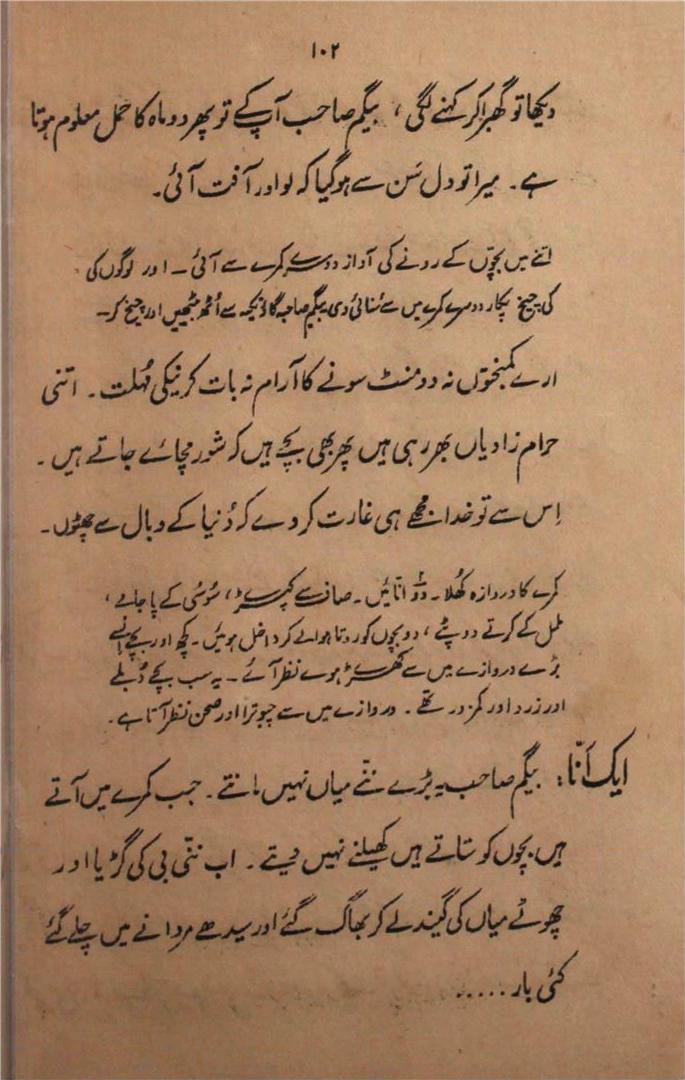 ۱۰۲
دیکھا تو گھبرا کر کہنے لگی، بیگم صاحب آپ کے تو پھر دو ماہ کا حمل معلوم ہوتا
ہے۔ میرا تو دل سَن سے ہو گیا کہ لو اور آفت آئی۔
اتنے میں بچّوں کے رونے کی آواز دوسرے کمرے سے آئی۔ اور لوگوں کی
کی چیخ پکار دوسرے کمرے میں سے سُنائی دی بیگم صاحبہ گاؤ تکیہ سے اُٹھ بیٹھیں اور چیخ کر۔
ارے کمبختوں نہ دو منٹ سونے کا آرام نہ بات کرنیکی مُہلت۔ اتنی
حرام زادیاں بھر رہی ہیں پھر بھی بچے ہیں کہ شور مچائے جاتے ہیں۔
اِس سے تو خدا مجھے ہی غارت کر دے کہ دُنیا کے وبال سے چھٹوں۔
کمرے کا دروازہ کھُلا۔ دو انّائیں۔ صاف سے کپڑے، سُوسی کے پاجامے،
ململ کے کرتے دوپٹے، دو بچوں کو روتا ہوا لے کر داخل ہوئیں۔ کچھ اور بچے اُنسے
بڑے دروازے میں سے کھڑے ہوے نظر آئے۔ یہ سب بچے دُبلے
اور زرد اور کمزور تھے۔ دروازے میں سے چبوترا اور صحن نظر آتا ہے۔
ایک اَنّا: بیگم صاحب یہ بڑے ننّے میاں نہیں مانتے۔ جب کمرے میں آتے
ہیں بچوں کو ستاتے ہیں کھیلنے نہیں دیتے۔ اب ننّی بی کی گڑیا اور
چھوٹے میاں کی گیند لے کر بھاگ گئے اور سیدھے مردانے میں چلے گئے
کئی بار.....